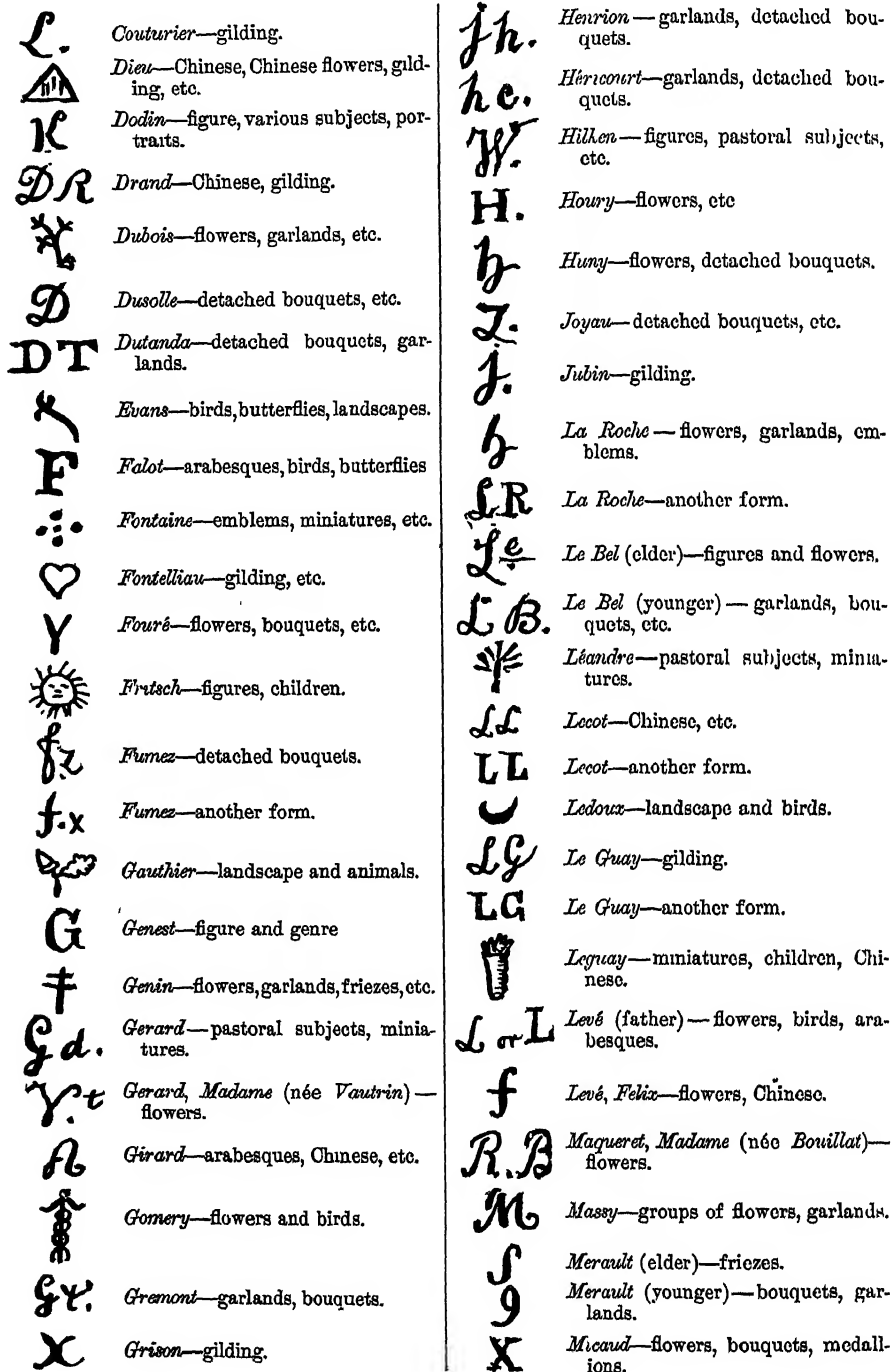 L. Couturier—gilding.
Dieu—Chinese, Chinese flowers, gild-
ing, etc.
K Dodin—figure, various subjects, por-
traits.
DR Drand—Chinese, gilding.
Dubois—flowers, garlands, etc.
D Dusolle—detached bouquets, etc.
DT Dutanda—detached bouquets, gar-
lands.
Evans—birds, butterflies, landscapes.
F Falot—arabesques, birds, butterflies
Fontaine—emblems, miniatures, etc.
Fontelliau—gilding, etc.
Y Fouré—flowers, bouquets, etc.
Fritsch—figures, children.
fz Fumez—detached bouquets.
f.x Fumez—another form.
Gauthier—landscape and animals.
G Genest—figure and genre
Genin—flowers, garlands, friezes, etc.
Gd. Gerard—pastoral subjects, minia-
tures.
V.t Gerard, Madame (née Vautrin)—
flowers.
A Girard—arabesques, Chinese, etc.
Gomery—flowers and birds.
Gt. Gremont—garlands, bouquets.
X Grison—gilding.
jh. Henrion—garlands, detached bou-
quets.
hc. Héricourt—garlands, detached bou-
quets.
W. Hilken—figures, pastoral subjects,
etc.
H. Houry—flowers, etc
h Huny—flowers, detached bouquets.
Z. Joyau—detached bouquets, etc.
j. Jubin—gilding.
h La Roche—flowers, garlands, em-
blems.
LR La Roche—another form.
Le Le Bel (elder)—figures and flowers.
LB. Le Bel (younger)—garlands, bou-
quets, etc.
Léandre—pastoral subjects, minia-
tures.
LL Lecot—Chinese, etc.
LL Lecot—another form.
Ledoux—landscape and birds.
LG Le Guay—gilding.
LG Le Guay—another form.
Leguay—miniatures, children, Chi-
nese.
L or L Levé (father)—flowers, birds, ara-
besques.
f Levé, Felix—flowers, Chinese.
R.B Maqueret, Madame (née Bouillat)—
flowers.
M Massy—groups of flowers, garlands.
S Merault (elder)—friezes.
9 Merault (younger)—bouquets, gar-
lands.
X Micaud—flowers, bouquets, medall-
ions.